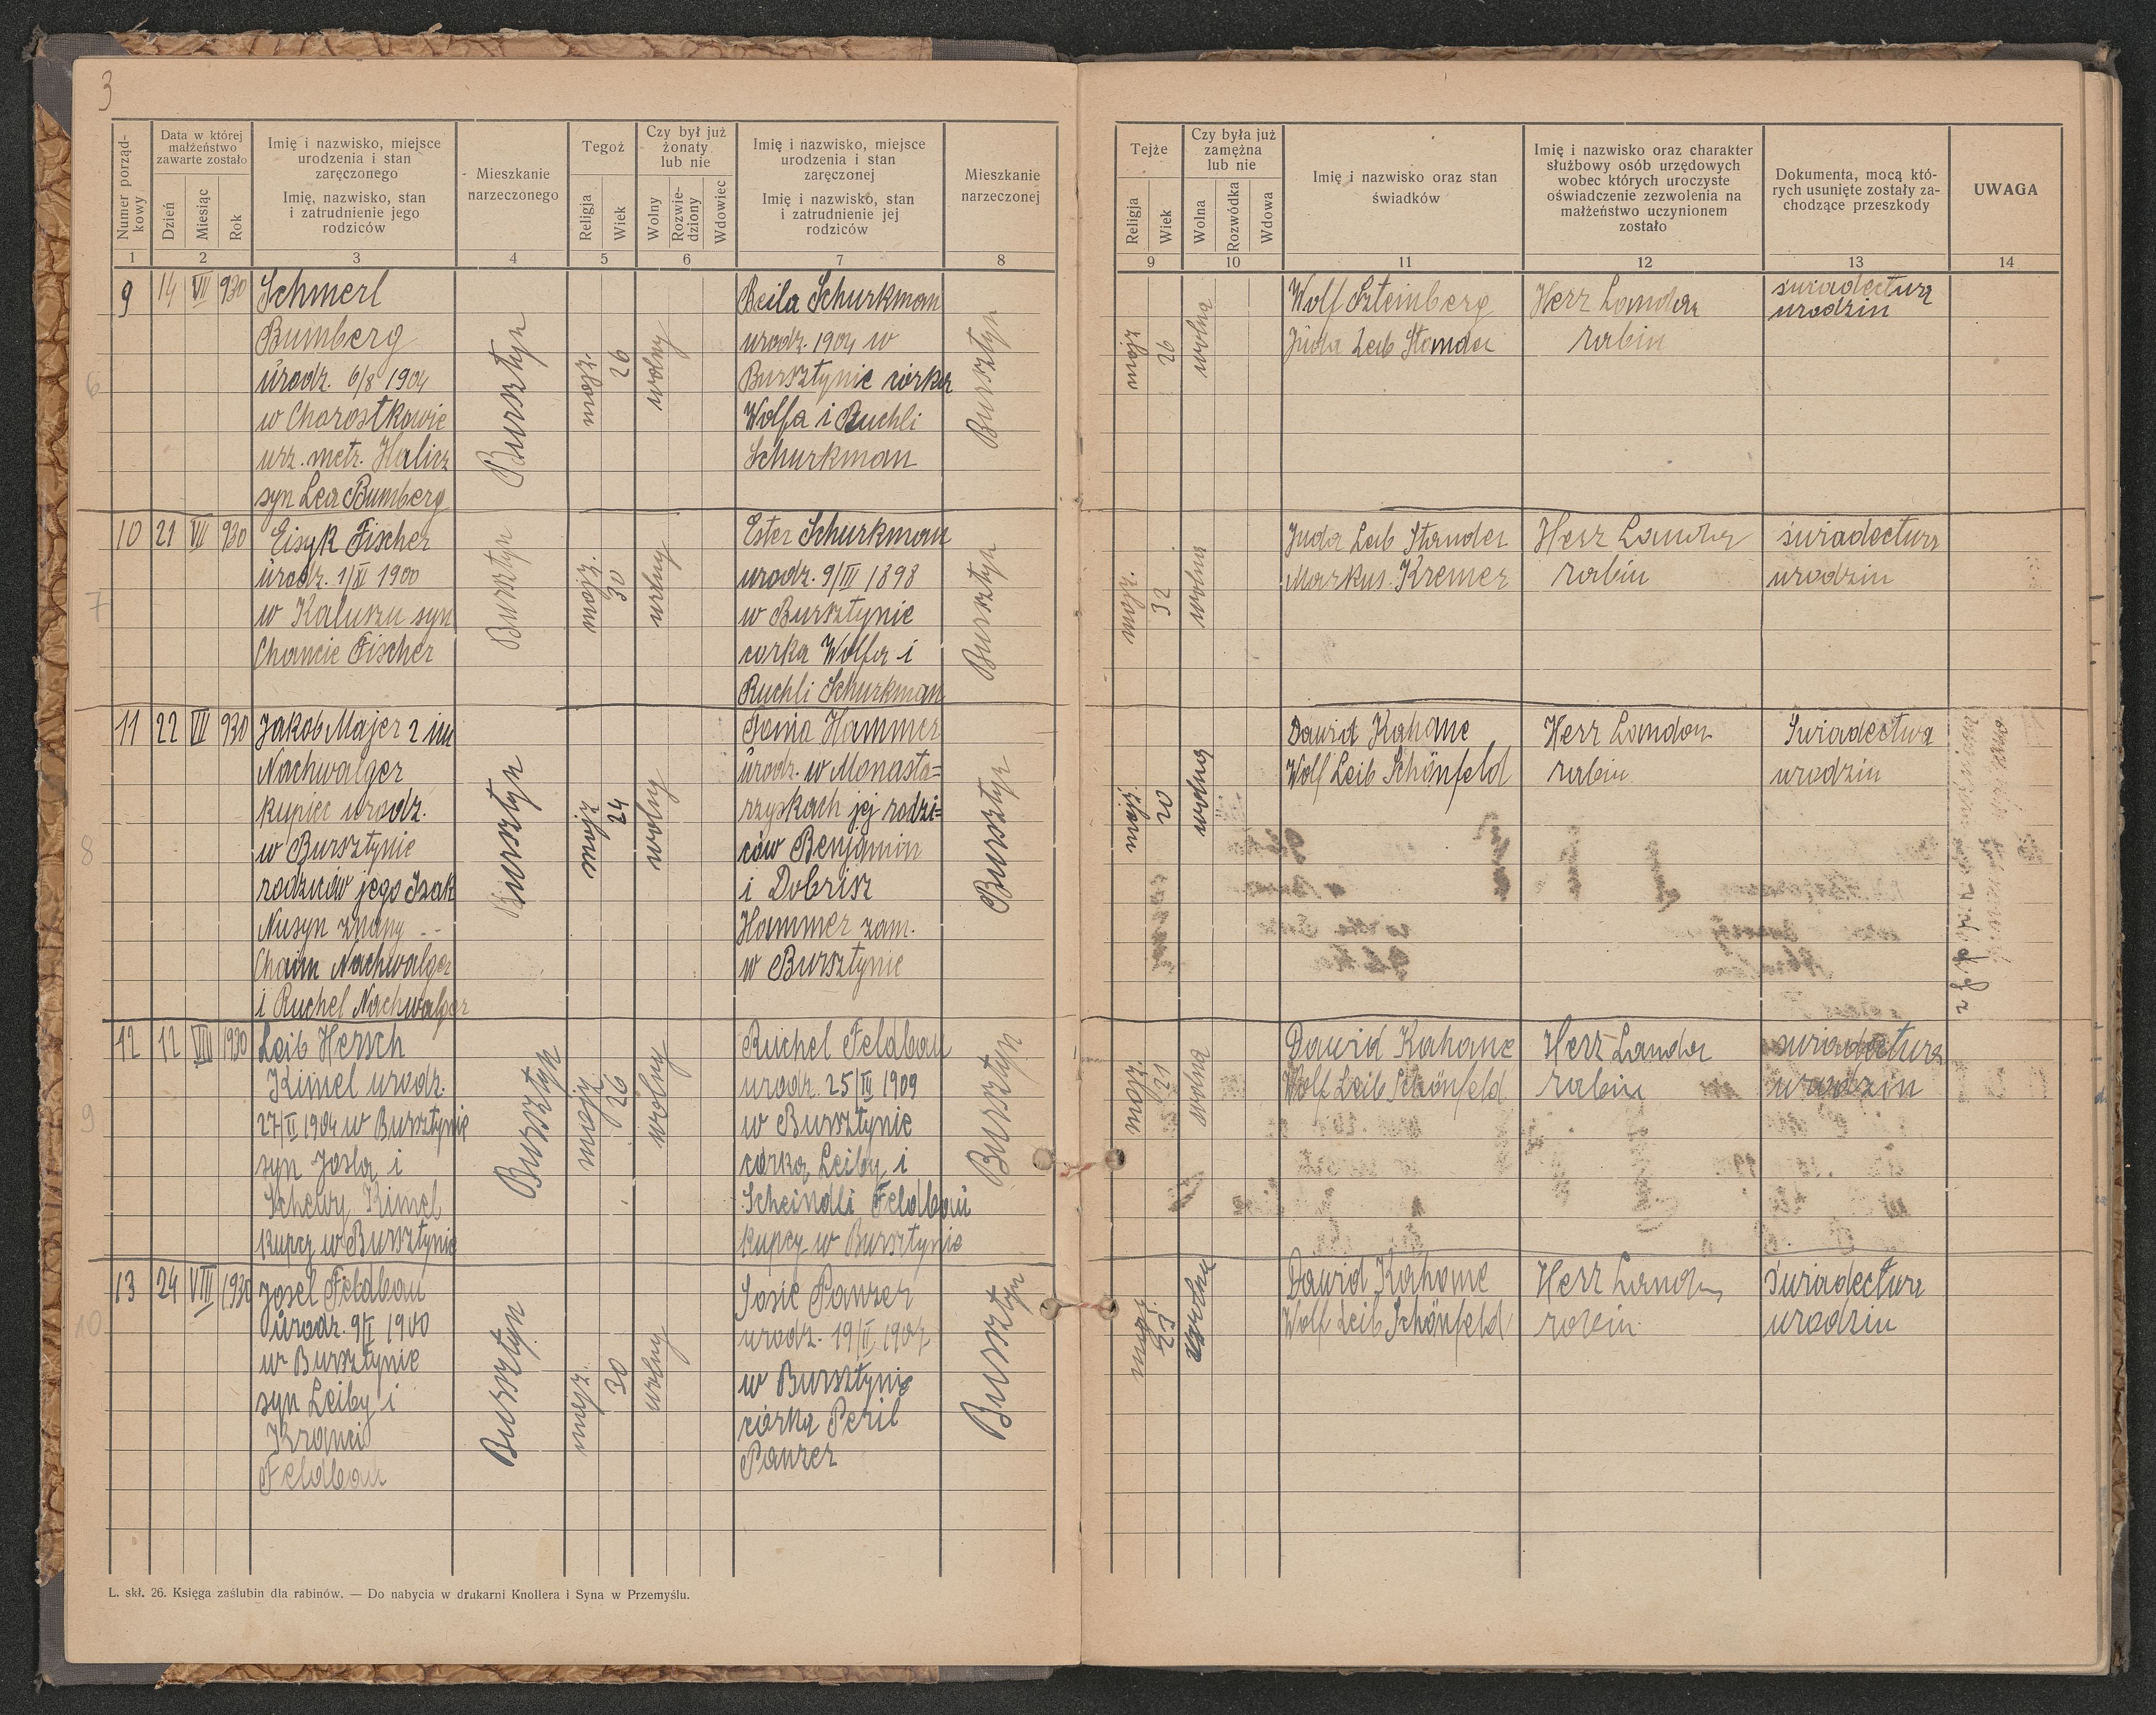 3
Numer porząd-
kowy
Data w której
małżeństwo
zawarte zostało
Dzień
Miesiąc
Rok
Imię i nazwisko, miejsce
urodzenia i stan
zaręczonego
Imię, nazwisko, stan
i zatrudnienie jego
rodziców
Mieszkanie
narzeczonego
Tegoż
Religja
Wiek
Czy był już
żonaty
lub nie
Wolny
Rozwie-
dziony
Wdowiec
Imię i nazwisko, miejsce
urodzenia i stan
zaręczonej
Imię i nazwisko, stan
i zatrudnienie jej
rodziców
Mieszkanie
narzeczonej
1 2 3 4 5 6 7 8
Tejże
Religja
Wiek
Czy była już
zamężna
lub nie
Wolna
Rozwódka
Wdowa
Imię i nazwisko oraz stan
świadków
Imię i nazwisko oraz charakter
służbowy osób urzędowych
wobec których uroczyste
oświadczenie zezwolenia na
małżeństwo uczynionem
zostało
Dokumenta, mocą któ-
rych usunięte zostały za-
chodzące przeszkody
UWAGA
9 10 11 12 13 14
6
9 14 VII 930
Schmerl
Bumberg
urodz. 6/8 1904
w Chorostkowie
urz. metr. Halicz
syn Lea Bumberg
Bursztyn
mojż. 26
wolny
Beila Schurkman
urodz. 1904 w
Bursztynie córka
Wolfa i Ruchli
Schurkman
Bursztyn
mojż 26
wolna
Wolf Szteinberg
Juda Leib Stander
Herz Landau
rabin
świadectwa
urodzin
7
10 21 VII 930
Eisyk Fischer
urodz. 1/XI 1900
w Kałuszu syn
Chancie Fischer
Bursztyn
mojż. 30
wolny
Ester Schurkman
urodz. 9/III 1898
w Bursztynie
corka Wolfa i
Ruchli Schurkman
Bursztyn
mojż. 32
wolna
Juda Leib Stander
Markus Kremer
Herz Landau
rabin
świadectwa
urodzin
8
11 22 VII 930
Jakob Majer 2 im
Nachwalger
kupiec urodz.
w Bursztynie
rodziców jego Izak
Nusyn znany --
Chaim Nachwalger
i Ruchel Nachwalger
Bursztyn
mojż 24
wolny
Fania Hammer
urodz. w Monasta=
rzyskach jej rodzi=
ców Benjamin
i Dobrisz
Hammer zam.
w Bursztynie
Bursztyn
mojż 20
wolna
Dawid Kahane
Wolf Leib Schönfeld
Herz Landau
rabin
Świadectwa
urodzin
9
12 12 VIII 1930
Leib Hersch
Kimel urodz.
27/II 1904 w Bursztynie
syn Josla i
Schewy Kimel
kupcy w Bursztynie
Bursztyn
mojż 26
wolny
Ruchel Feldbau
urodz. 25/III 1909
w Bursztynie
córka Leiby i
Scheindli Feldbau
kupcy w Bursztynie
Bursztyn
mojż. 21
wolna
Dawid Kahane
Wolf Leib Schönfeld
Herz Landau
rabin
świadectwa
urodzin
10
13 24 VIII 1930
Josel Feldbau
urodz. 9/I 1900
w Bursztynie
syn Leiby i
Feldbau
Bursztyn
mojż. 30
wolny
Sosie Panzer
urodz. 19/II 1907
w Bursztynie
córka Peril
Panzer
Bursztyn
mojż 23
wolna
Dawid Kahane
Wolf Leib Schönfeld
Herz Landau
rabin
Świadectwa
urodzin
L. skł. 26. Księga zaślubin dla rabinów. — Do nabycia w drukarni Knollera i Syna w Przemyślu.